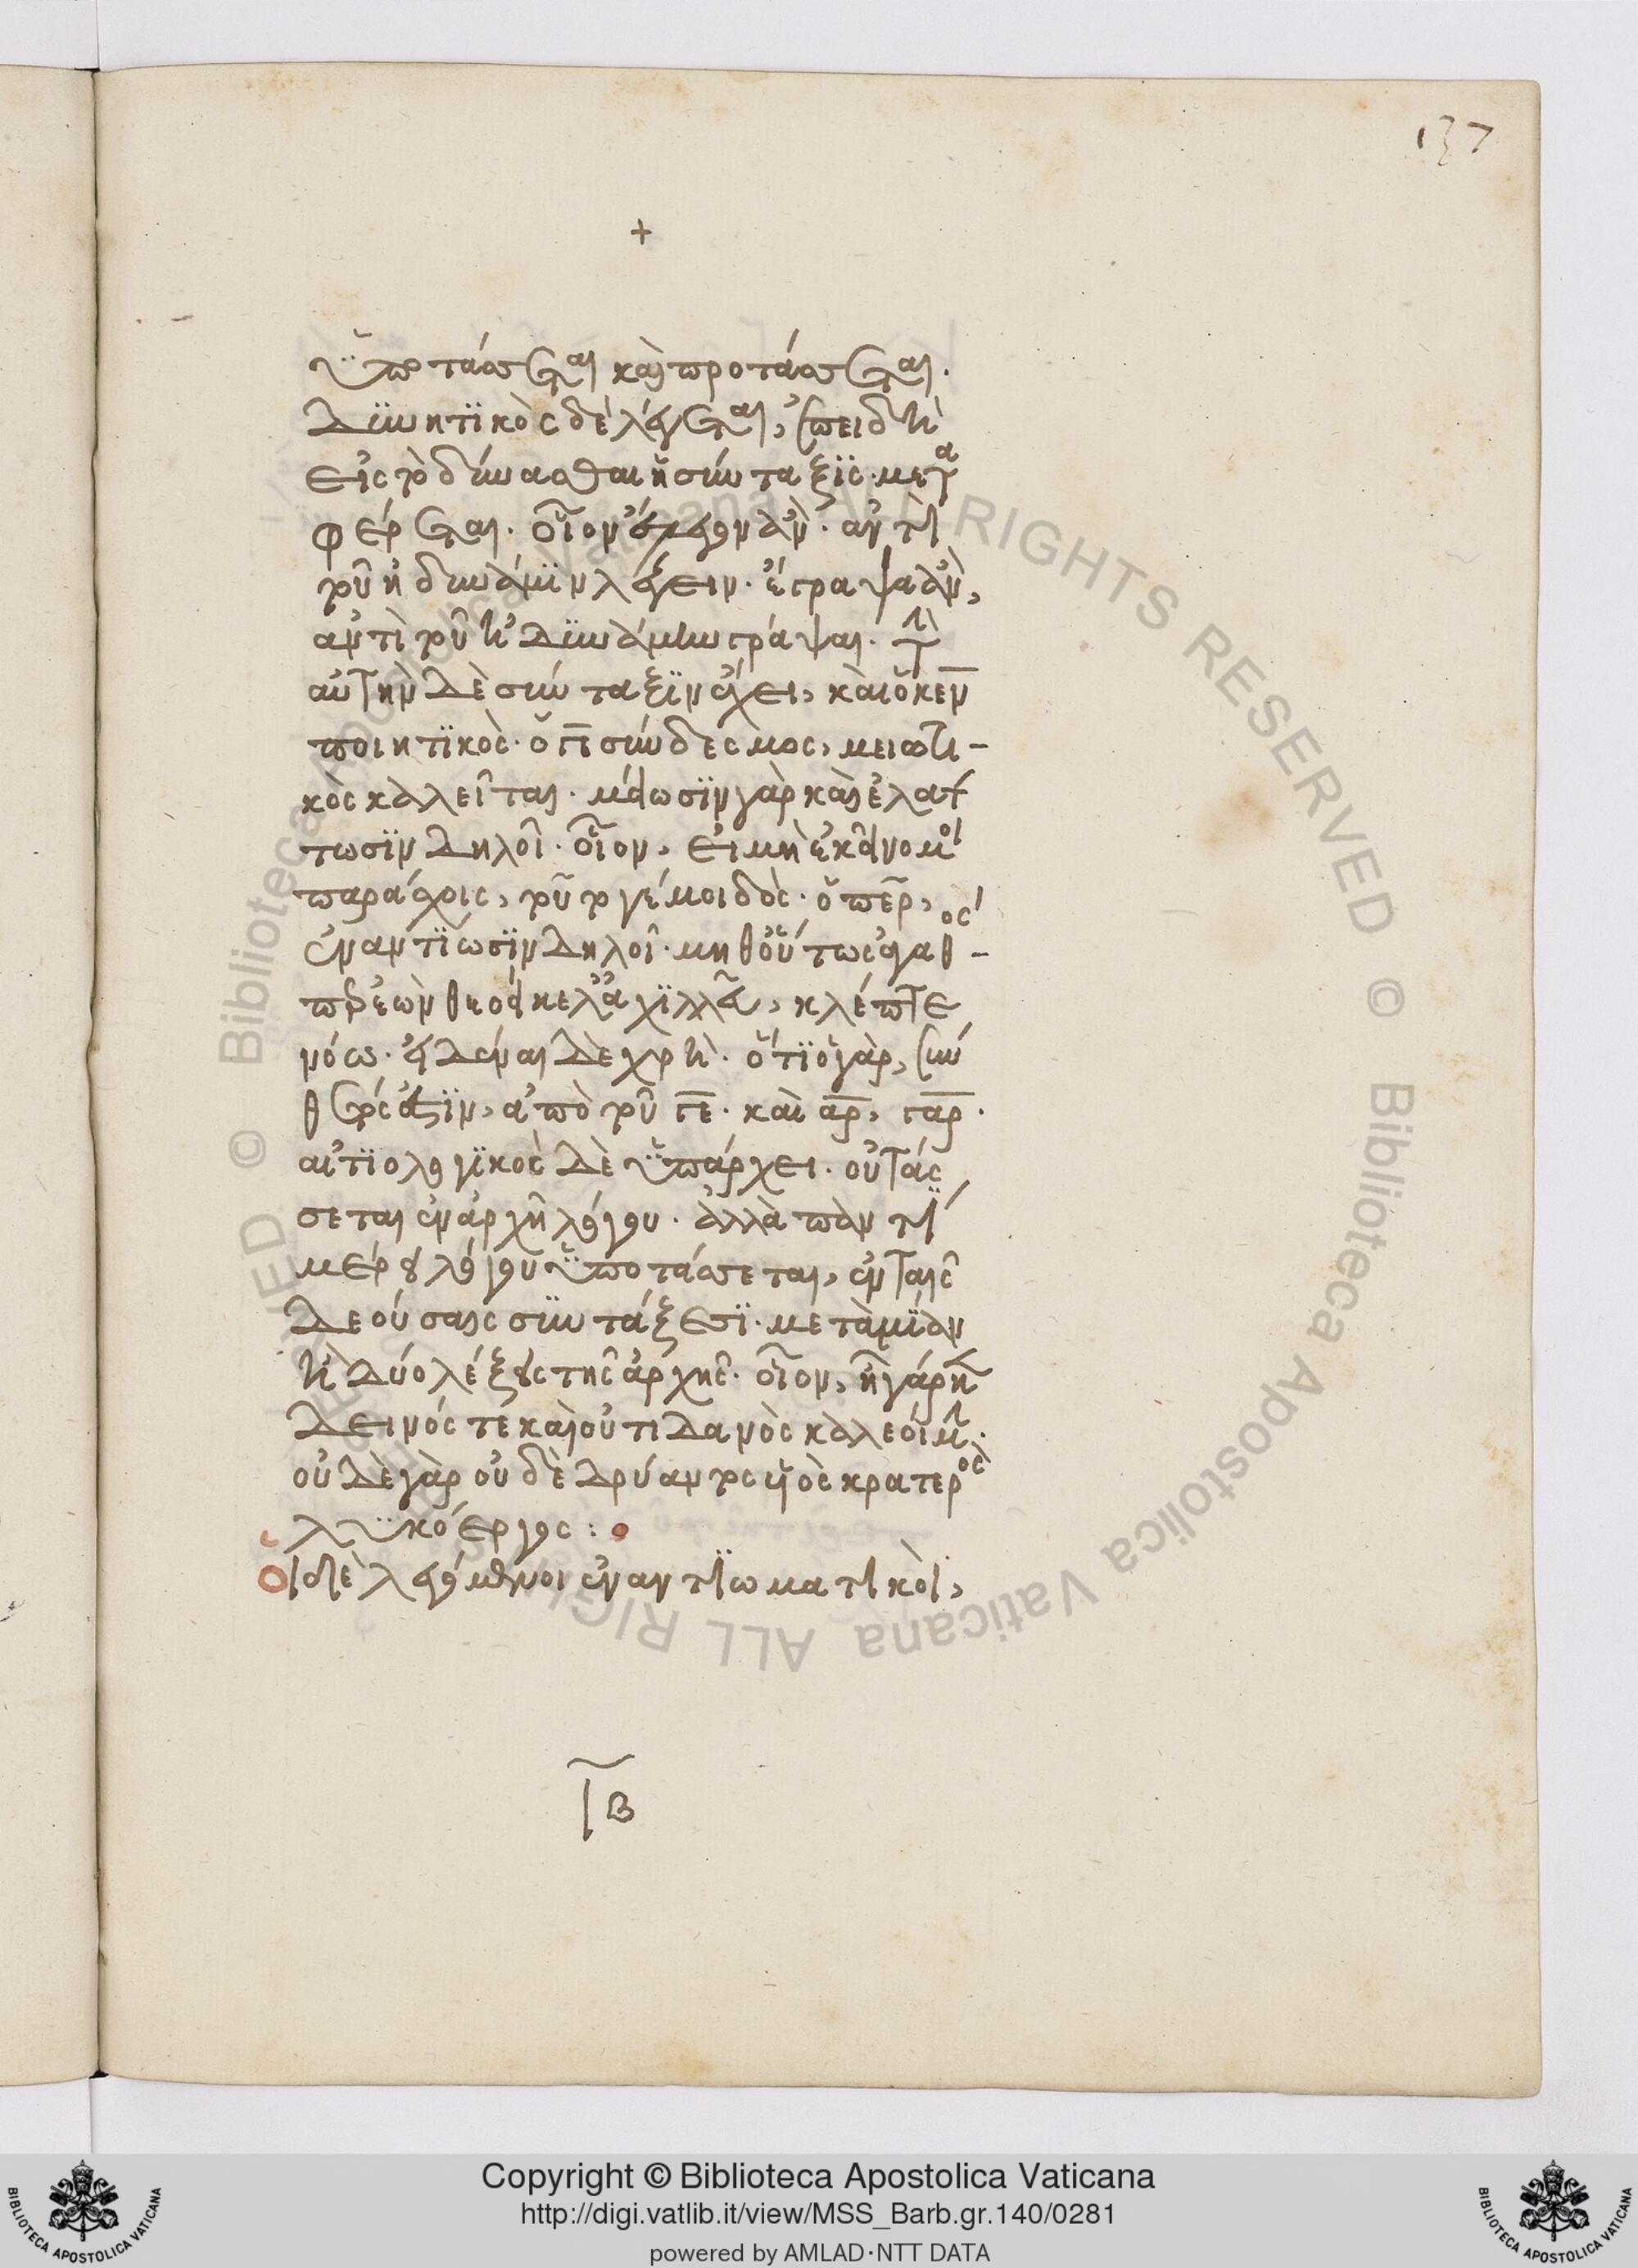 137
+
ὑποτάσσεται καὶ προτάσσεται.
Δϋνητϊκὸς δὲ λέγεται, ἐπειδὴ
εἰς τὸ δύνασθαι ἡ σύνταξϊς μετα
φέρεται. οἷον ἔλεγον ἂν. ἀντὶ
τοῦ ἠδυνάμϊν λέγειν. ἔγραψα ἂν,
ἀντὶ τοῦ ἠδϋνάμην γράψαι. τὴν
αὐτὴν δὲ σύνταξϊν ἔχει, καὶ ὁ κεν
ποιητϊκὸς. ὁ γε σύνδεσμος, μειωτι-
κὸς καλεῖται. μείωσϊν γὰρ καὶ ἐλάτ
τωσϊν δηλοῖ. οἷον, εἰ μὴ ἐκεῖνο μοι
παράσχοις, τοῦτο γέ μοι δὸς. ὁ περ,
ἐναντϊωσϊν δηλοῖ. μηδ' οὕτως ἀγαθός
περ ἐὼν θεοείκελ' ἀχϊλλεῦ, κλέπτε
νόω. εἰδέναι δὲ χρὴ. ὅτϊ ὁ γὰρ, ἐν
θέσει ἐστϊν, ἀπὸ τοῦ γε. καὶ αρ, γαρ.
αἰτϊολογϊκὸς δὲ ὑπάρχει. οὐ τάς
σεται ἐν ἀρχῆ λόγου. ἀλλὰ παντὶ
μέρει λόγου ὑποτάσσεται, ἐν ταῖς
δεούσαις σϋντάξεσϊ. μετὰ μϊὰν
ἢ δύο λέξεις τῆς ἀρχῆς. οἷον, ἦ γάρ κεν
δειλός τε καὶ οὐτιδανὸς καλεοίμην.
οὐδὲ γὰρ οὐδὲ δρύαντος υἱὸς κρατερὸς
λϋκόεργος :
Οἱ δὲ λεγόμενοι ἐναντϊωματικοὶ,
ιβ
Copyright © Biblioteca Apostolica Vaticana
http://digi.vatlib.it/view/MSS_Barb.gr.140/0281
powered by AMLAD·NTT DATA